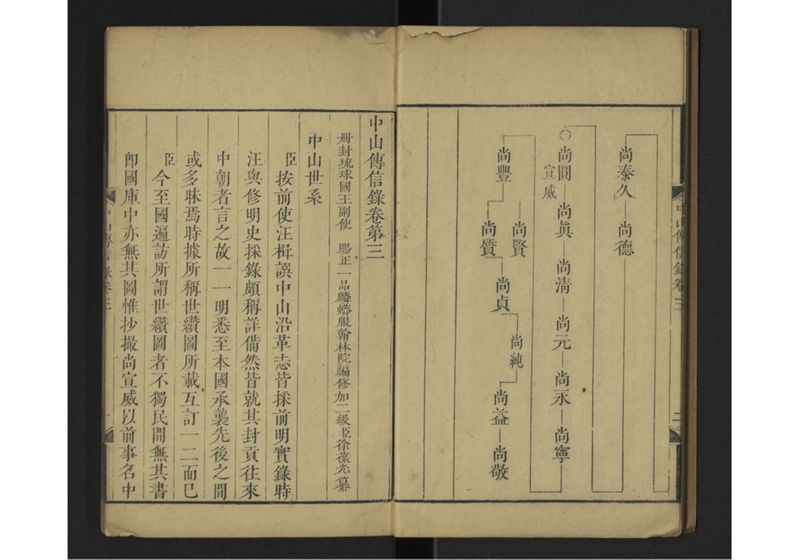 中山傳信錄卷三
二
尚泰久 尚德
○尚圓 尚眞 尚清 尚元 尚永 尚寧
宣威
尚賢
尚純
尚豐 尚質 尚貞 尚益 尚敬
中山傳信錄卷第三
冊封琉球國王副使 賜正一品麟蟒服翰林院編修加二級臣徐葆光纂
中山世系
臣按前使汪楫譔中山沿革志皆採前明實錄時
汪與修明史採錄頗稱詳備然皆就其封貢往來
中朝者言之故一一明悉至本國承襲先後之間
或多昧焉時據所稱世纘圖所載互訂一二而已
臣今至國遍訪所謂世纘圖者不獨民間無其書
卽國庫中亦無其圖惟抄撮尚宣威以前事名中
中山傳信錄卷三
一